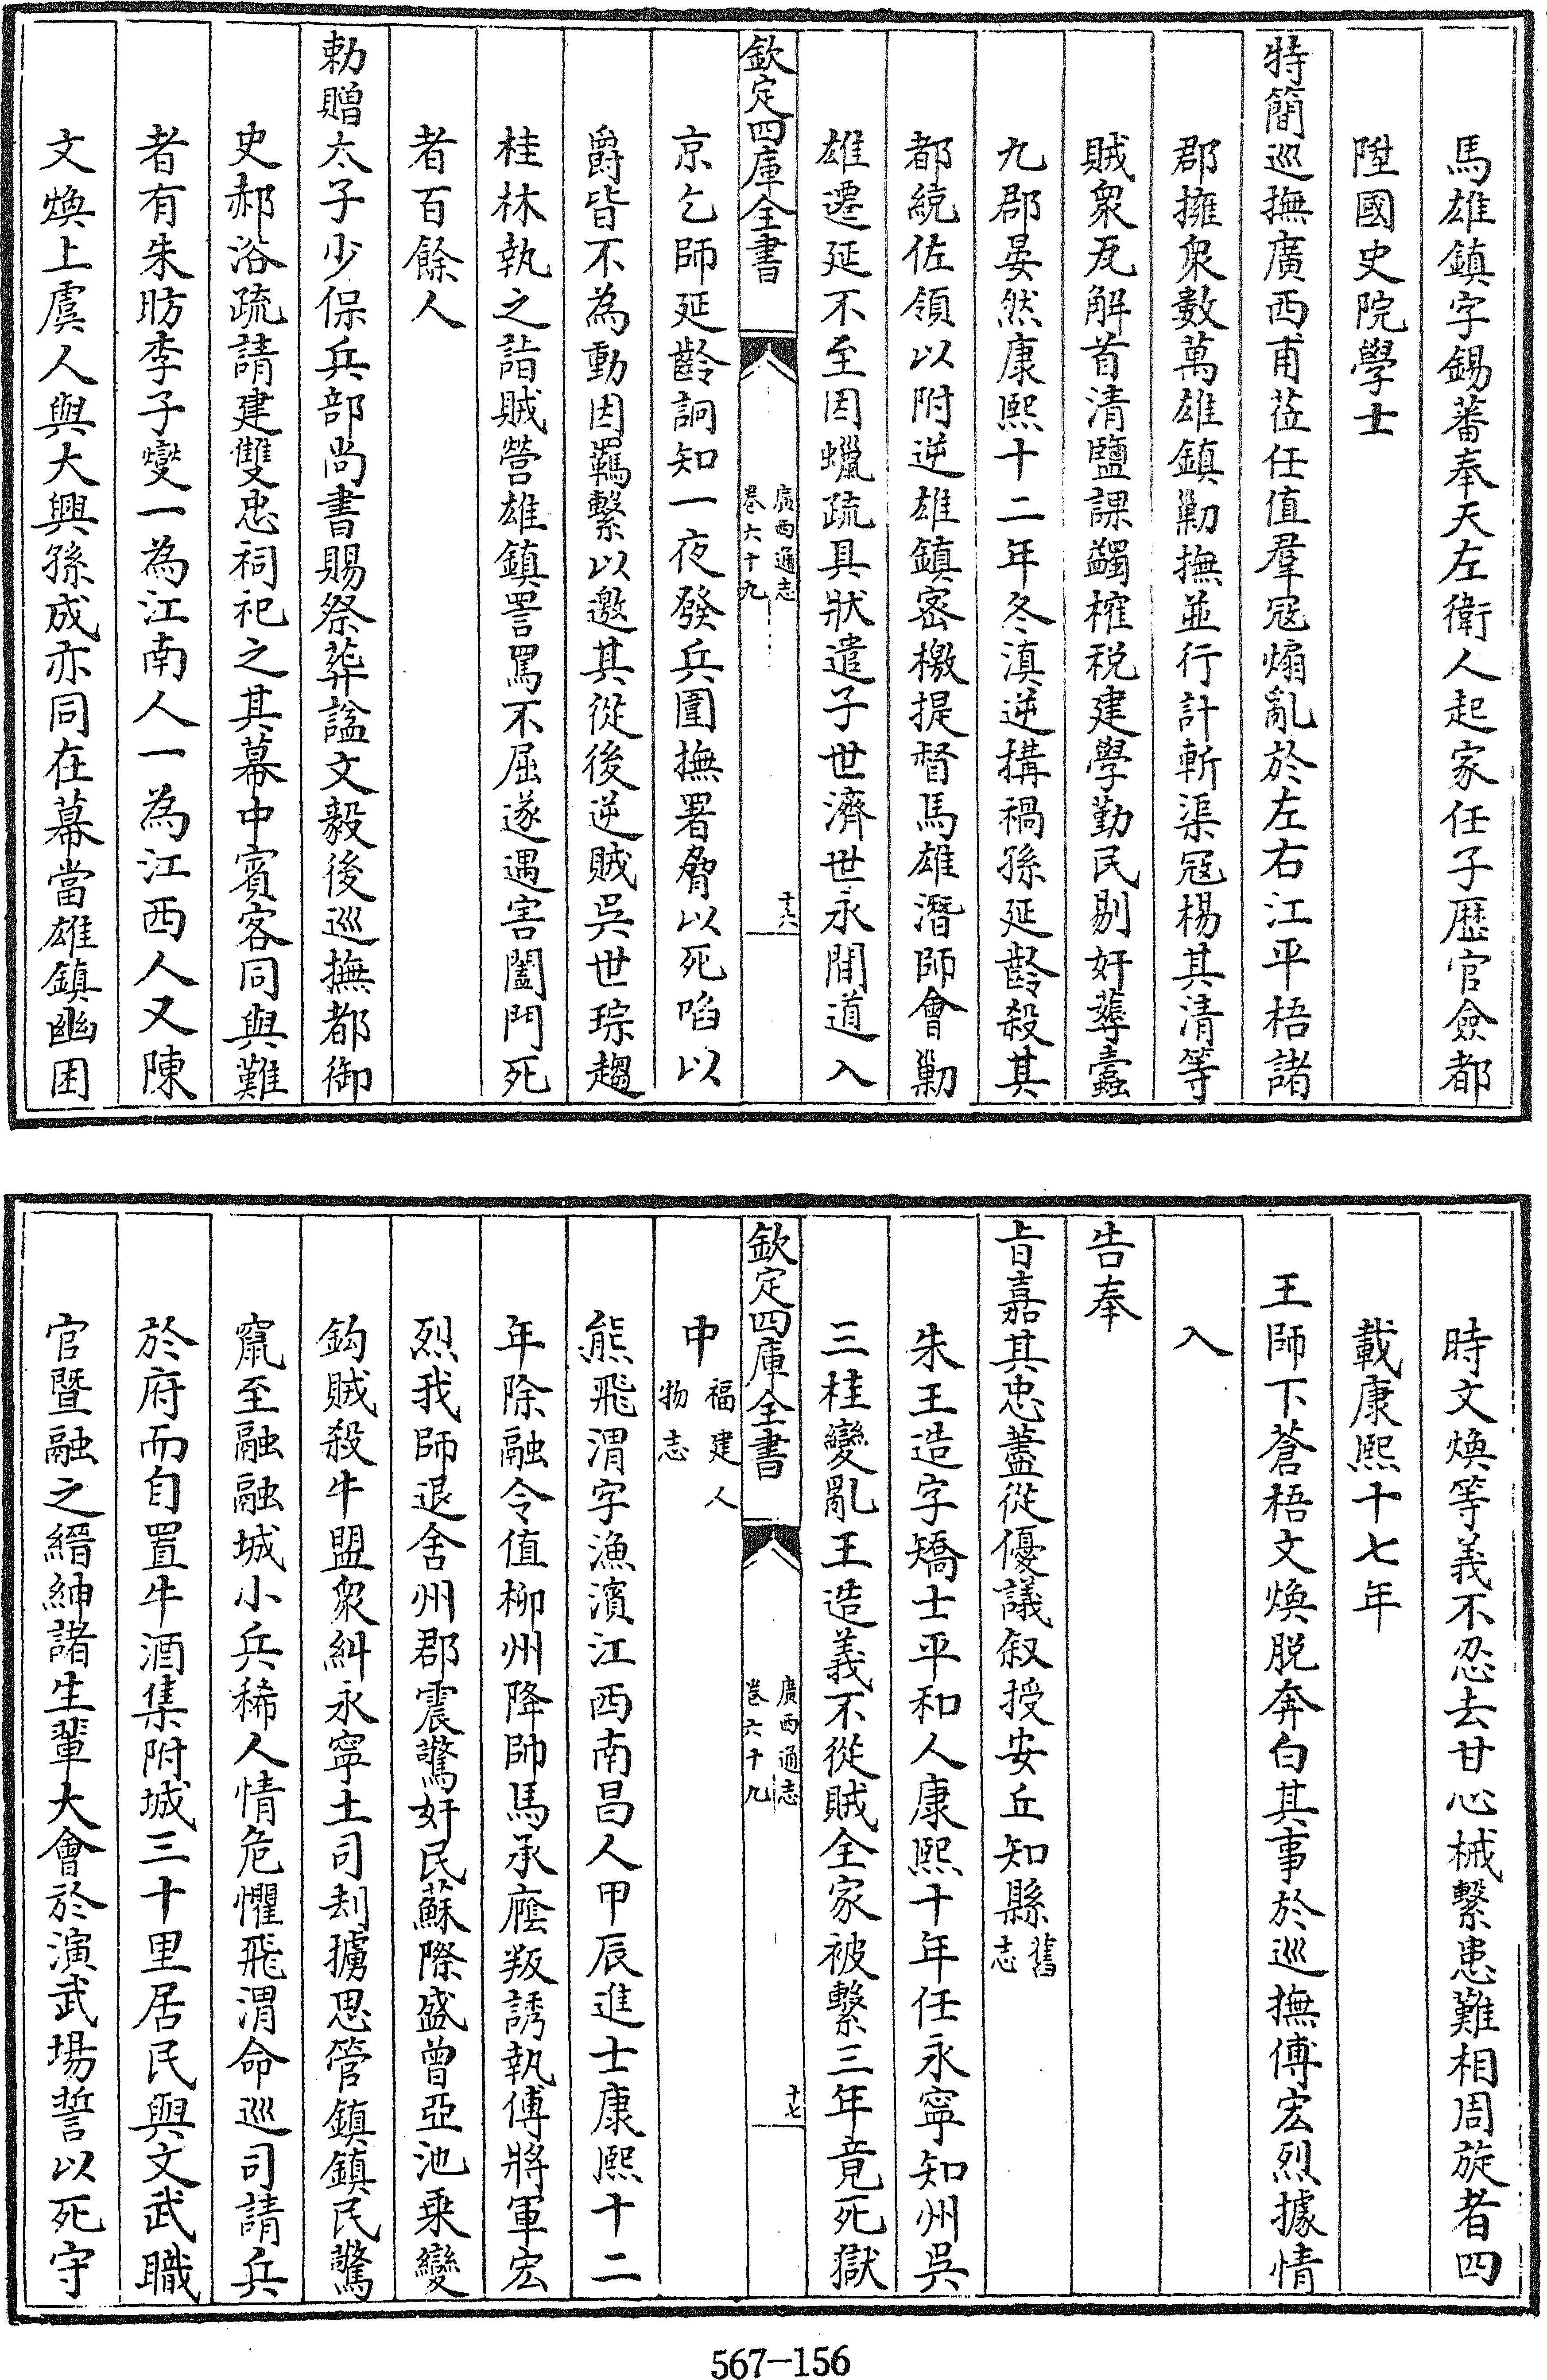 馬雄鎮字錫蕃奉天左衛人起家任子歴官僉都
陞國史院學士
特簡巡撫廣西甫莅任值羣冦煽亂於左右江平梧諸
郡擁衆數萬雄鎮勦撫並行計斬渠冦楊其清等
賊衆瓦解首清鹽課蠲榷税建學勤民剔奸孽蠹
九郡晏然康熙十二年冬滇逆搆禍孫延齡殺其
都統佐領以附逆雄鎮密檄提督馬雄潛師會勦
雄遷延不至因蠟疏具狀遣子世濟世永間道入
欽定四庫全書
廣西通志
卷六十九
十六
京乞師延齡詗知一夜發兵圍撫署脅以死啗以
爵皆不為動因羈繫以邀其從後逆賊吳世琮趨
桂林執之詣賊營雄鎮詈罵不屈遂遇害闔門死
者百餘人
勅贈太子少保兵部尚書賜祭葬諡文毅後巡撫都御
史郝浴疏請建雙忠祠祀之其幕中賓客同與難
者有朱昉李子燮一為江南人一為江西人又陳
文煥上虞人與大興孫成亦同在幕當雄鎮幽困
時文煥等義不忍去甘心械繫患難相周旋者四
載康熙十七年
王師下蒼梧文煥脱奔白其事於巡撫傅宏烈據情
入
告奉
旨嘉其忠藎從優議叙授安丘知縣舊志
朱王造字矯士平和人康熙十年任永寧知州吳
三桂變亂王造義不從賊全家被繫三年竟死獄
欽定四庫全書
廣西通志
卷六十九
十七
中福建人物志
熊飛渭字漁濱江西南昌人甲辰進士康熙十二
年除融令值柳州降帥馬承廕叛誘執傅將軍宏
烈我師退舍州郡震驚奸民蘇際盛曾亞池乘變
鈎賊殺牛盟衆糾永寧土司刦擄思管鎮鎮民驚
竄至融融城小兵稀人情危懼飛渭命巡司請兵
於府而自置牛酒集附城三十里居民與文武職
官暨融之縉紳諸生輩大會於演武場誓以死守
567-156